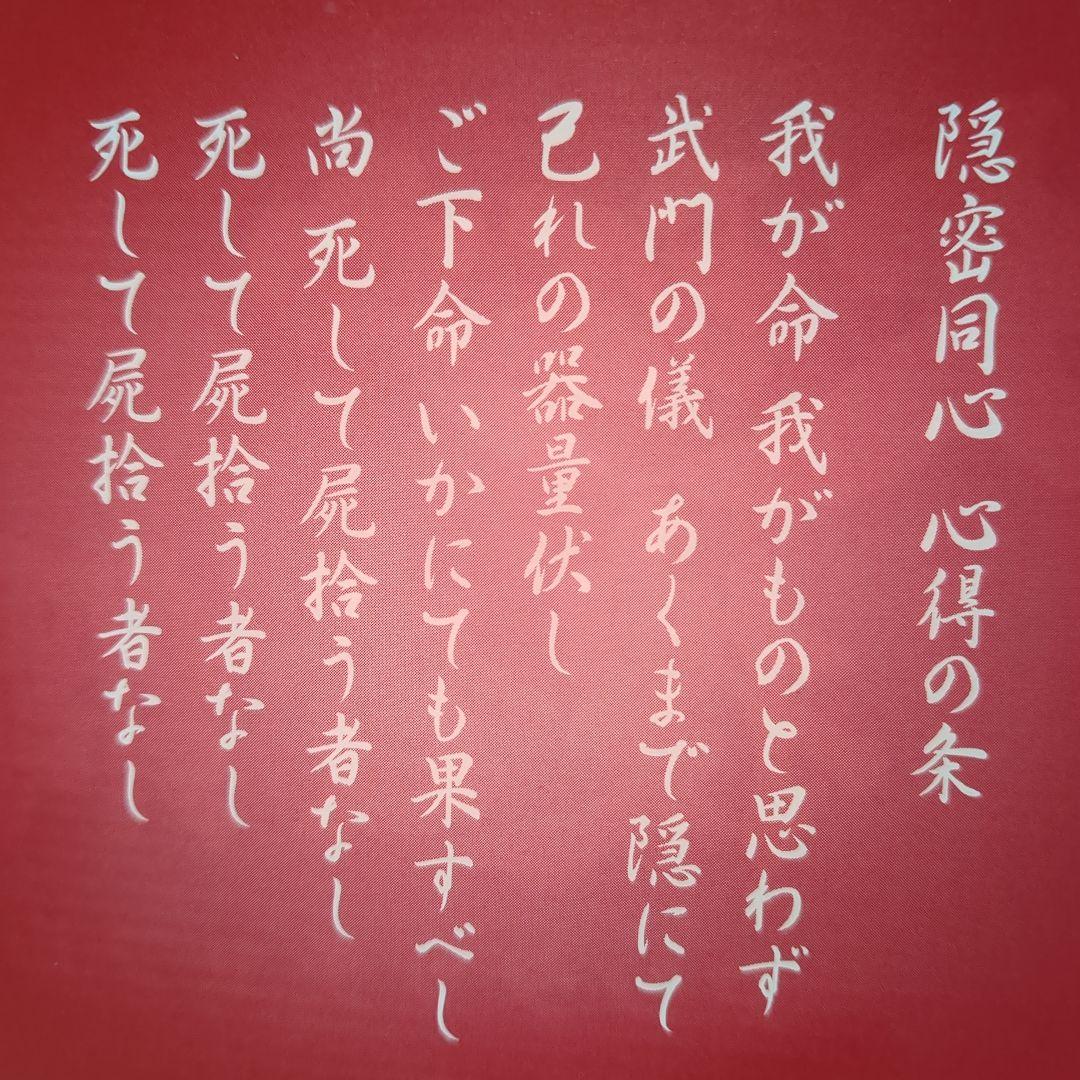 隠密同心 心得の条
我が命 我がものと思わず
武門の儀 あくまで隠にて
己れの器量伏し
ご下命 いかにても果すべし
尚 死して屍拾う者なし
死して屍拾う者なし
死して屍拾う者なし